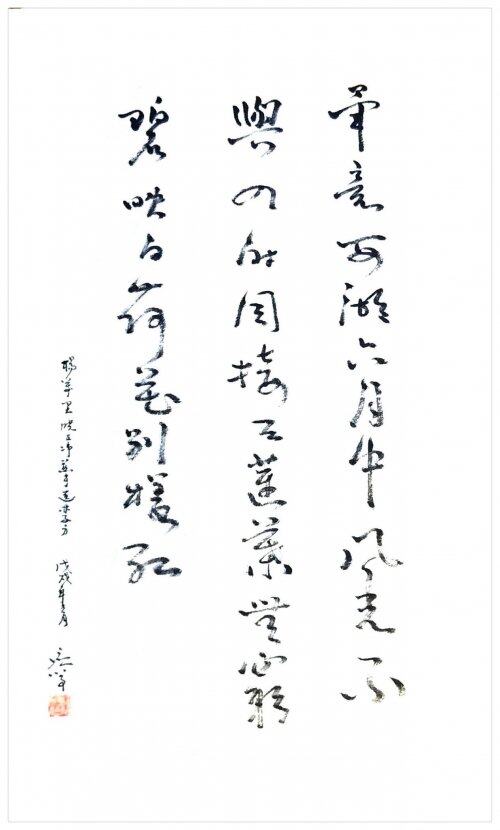 畢竟西湖六月中風光不
與四時同接天蓮葉無窮
碧映日荷花別樣紅
楊萬里曉出淨慈寺送林子方 戊戌年月